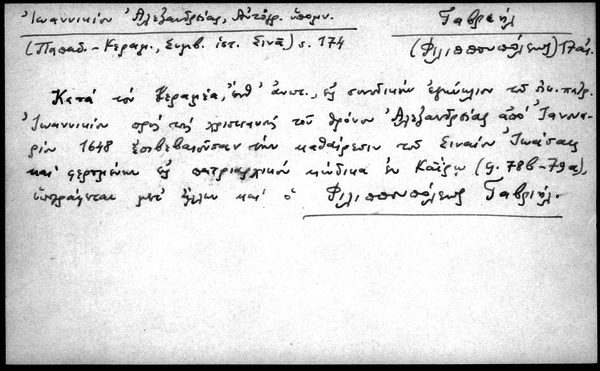 Ἰωαννικίου Ἀλεξανδρείας, Αὐτόγρ. ὑπομν. Γαβριήλ
(Παπαδ.-Κεραμ., Συμβ. ἱστ. Σινᾶ) s. 174 (Φιλιππουπόλεως) 17 αἰ.
Κατά τόν Κεραμέα, ἔνθ' ἀνωτ., εἰς συνοδικήν ἐγκύκλιον τοῦ πατρ.
Ἰωαννικίου πρός τούς χριστιανούς τοῦ θρόνου Ἀλεξανδρείας ἀπό Ἰαννουα-
ρίου 1648 ἐπιβεβαιοῦσαν τήν καθαίρεσιν τοῦ Σιναίου Ἰωάσαφ
καί φερομένην εἰς πατριαρχικόν κώδικα ἐν Καΐρῳ (φ. 78β-79α),
ὑπογράφεται μετ' ἄλλων καί ὁ Φιλιππουπόλεως Γαβριήλ.